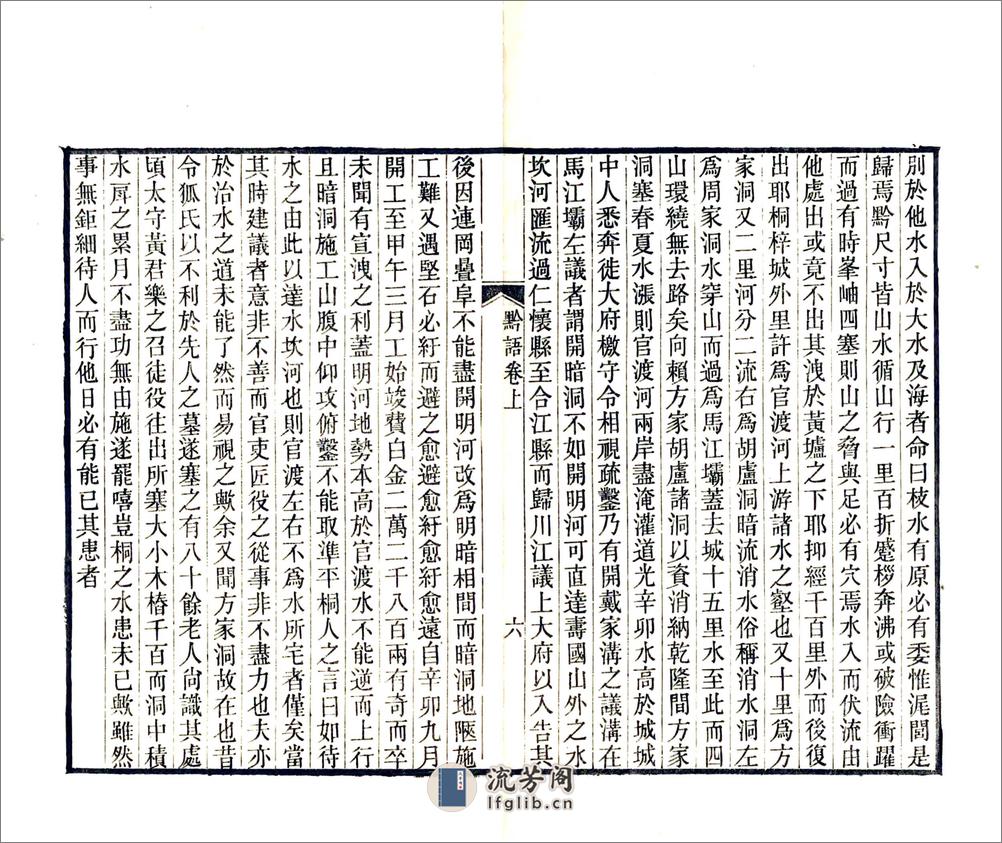 別於他水入於大水及海者命曰枝水有原必有委惟浘閭是
歸焉黔尺寸皆山水循山行一里百折蹙桚奔沸或破險衝躍
而過有時峯岫四塞則山之脅與足必有穴焉水入而伏流由
他處出或竟不出其洩於黃壚之下耶抑經千百里外而後復
出耶桐梓城外里許爲官渡河上游諸水之壑也又十里爲方
家洞又二里河分二流右爲胡盧洞暗流消水俗稱消水洞左
爲周家洞水穿山而過爲馬江壩蓋去城十五里水至此而四
山環繞無去路矣向賴方家胡盧諸洞以資消納乾隆間方家
洞塞春夏水漲則官渡河兩岸盡淹灌道光辛卯水高於城城
中人悉奔徙大府檄守令相視疏鑿乃有開戴家溝之議溝在
馬江壩左議者謂開暗洞不如開明河可直達壽國山外之水
坎河匯流過仁懷縣至合江縣而歸川江議上大府以入告其
黔語卷上
六
後因連岡疊阜不能盡開明河改爲明暗相間而暗洞地隁施
工難又遇堅石必紆而避之愈避愈紆愈紆愈遠自辛卯九月
開工至甲午三月工始竣費白金二萬二千八百兩有奇而卒
未聞有宣洩之利蓋明河地勢本高於官渡水不能逆而上行
且暗洞施工山腹中仰攻俯鑿不能取準平桐人之言曰如待
水之由此以達水坎河也則官渡左右不爲水所宅者僅矣當
其時建議者意非不善而官吏匠役之從事非不盡力也夫亦
於治水之道未能了然而易視之歟余又聞方家洞故在也昔
令狐氏以不利於先人之墓遂塞之有八十餘老人尙識其處
頃太守黃君樂之召徒役往出所塞大小木樁千百而洞中積
水戽之累月不盡功無由施遂罷嘻豈桐之水患未已歟雖然
事無鉅細待人而行他日必有能已其患者
流芳阁
lfglib.cn